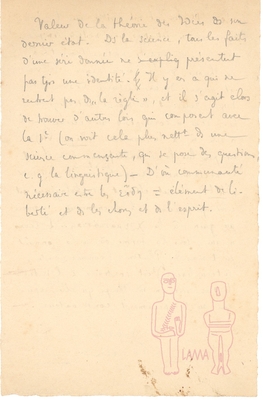 Valeur de la théorie des Idées ds son
dernier état. Ds la science, tous les faits
d'une série donnée ne présentent
pas une identité. Il y en a qui ne
rentrent pas ds « la règle », et il s'agit alors
de trouver d'autres lois qui composent avec
la 1e (on voit cela plus nettt ds une
science commençante, qui se pose des questions,
e. g. la linguistique) — D'où communauté
nécessaire entre les = élément de li-
berté et ds les choses et ds l'esprit.
LAMA